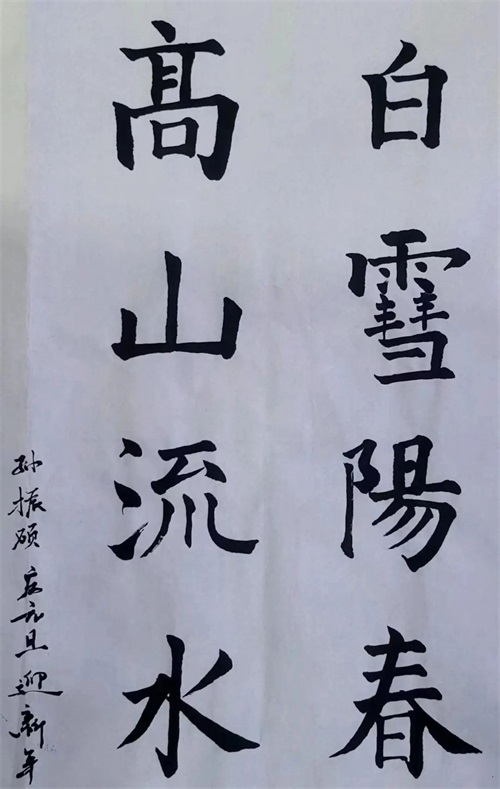 白䨮陽春
髙山流水
孙振硕 元旦迎新年